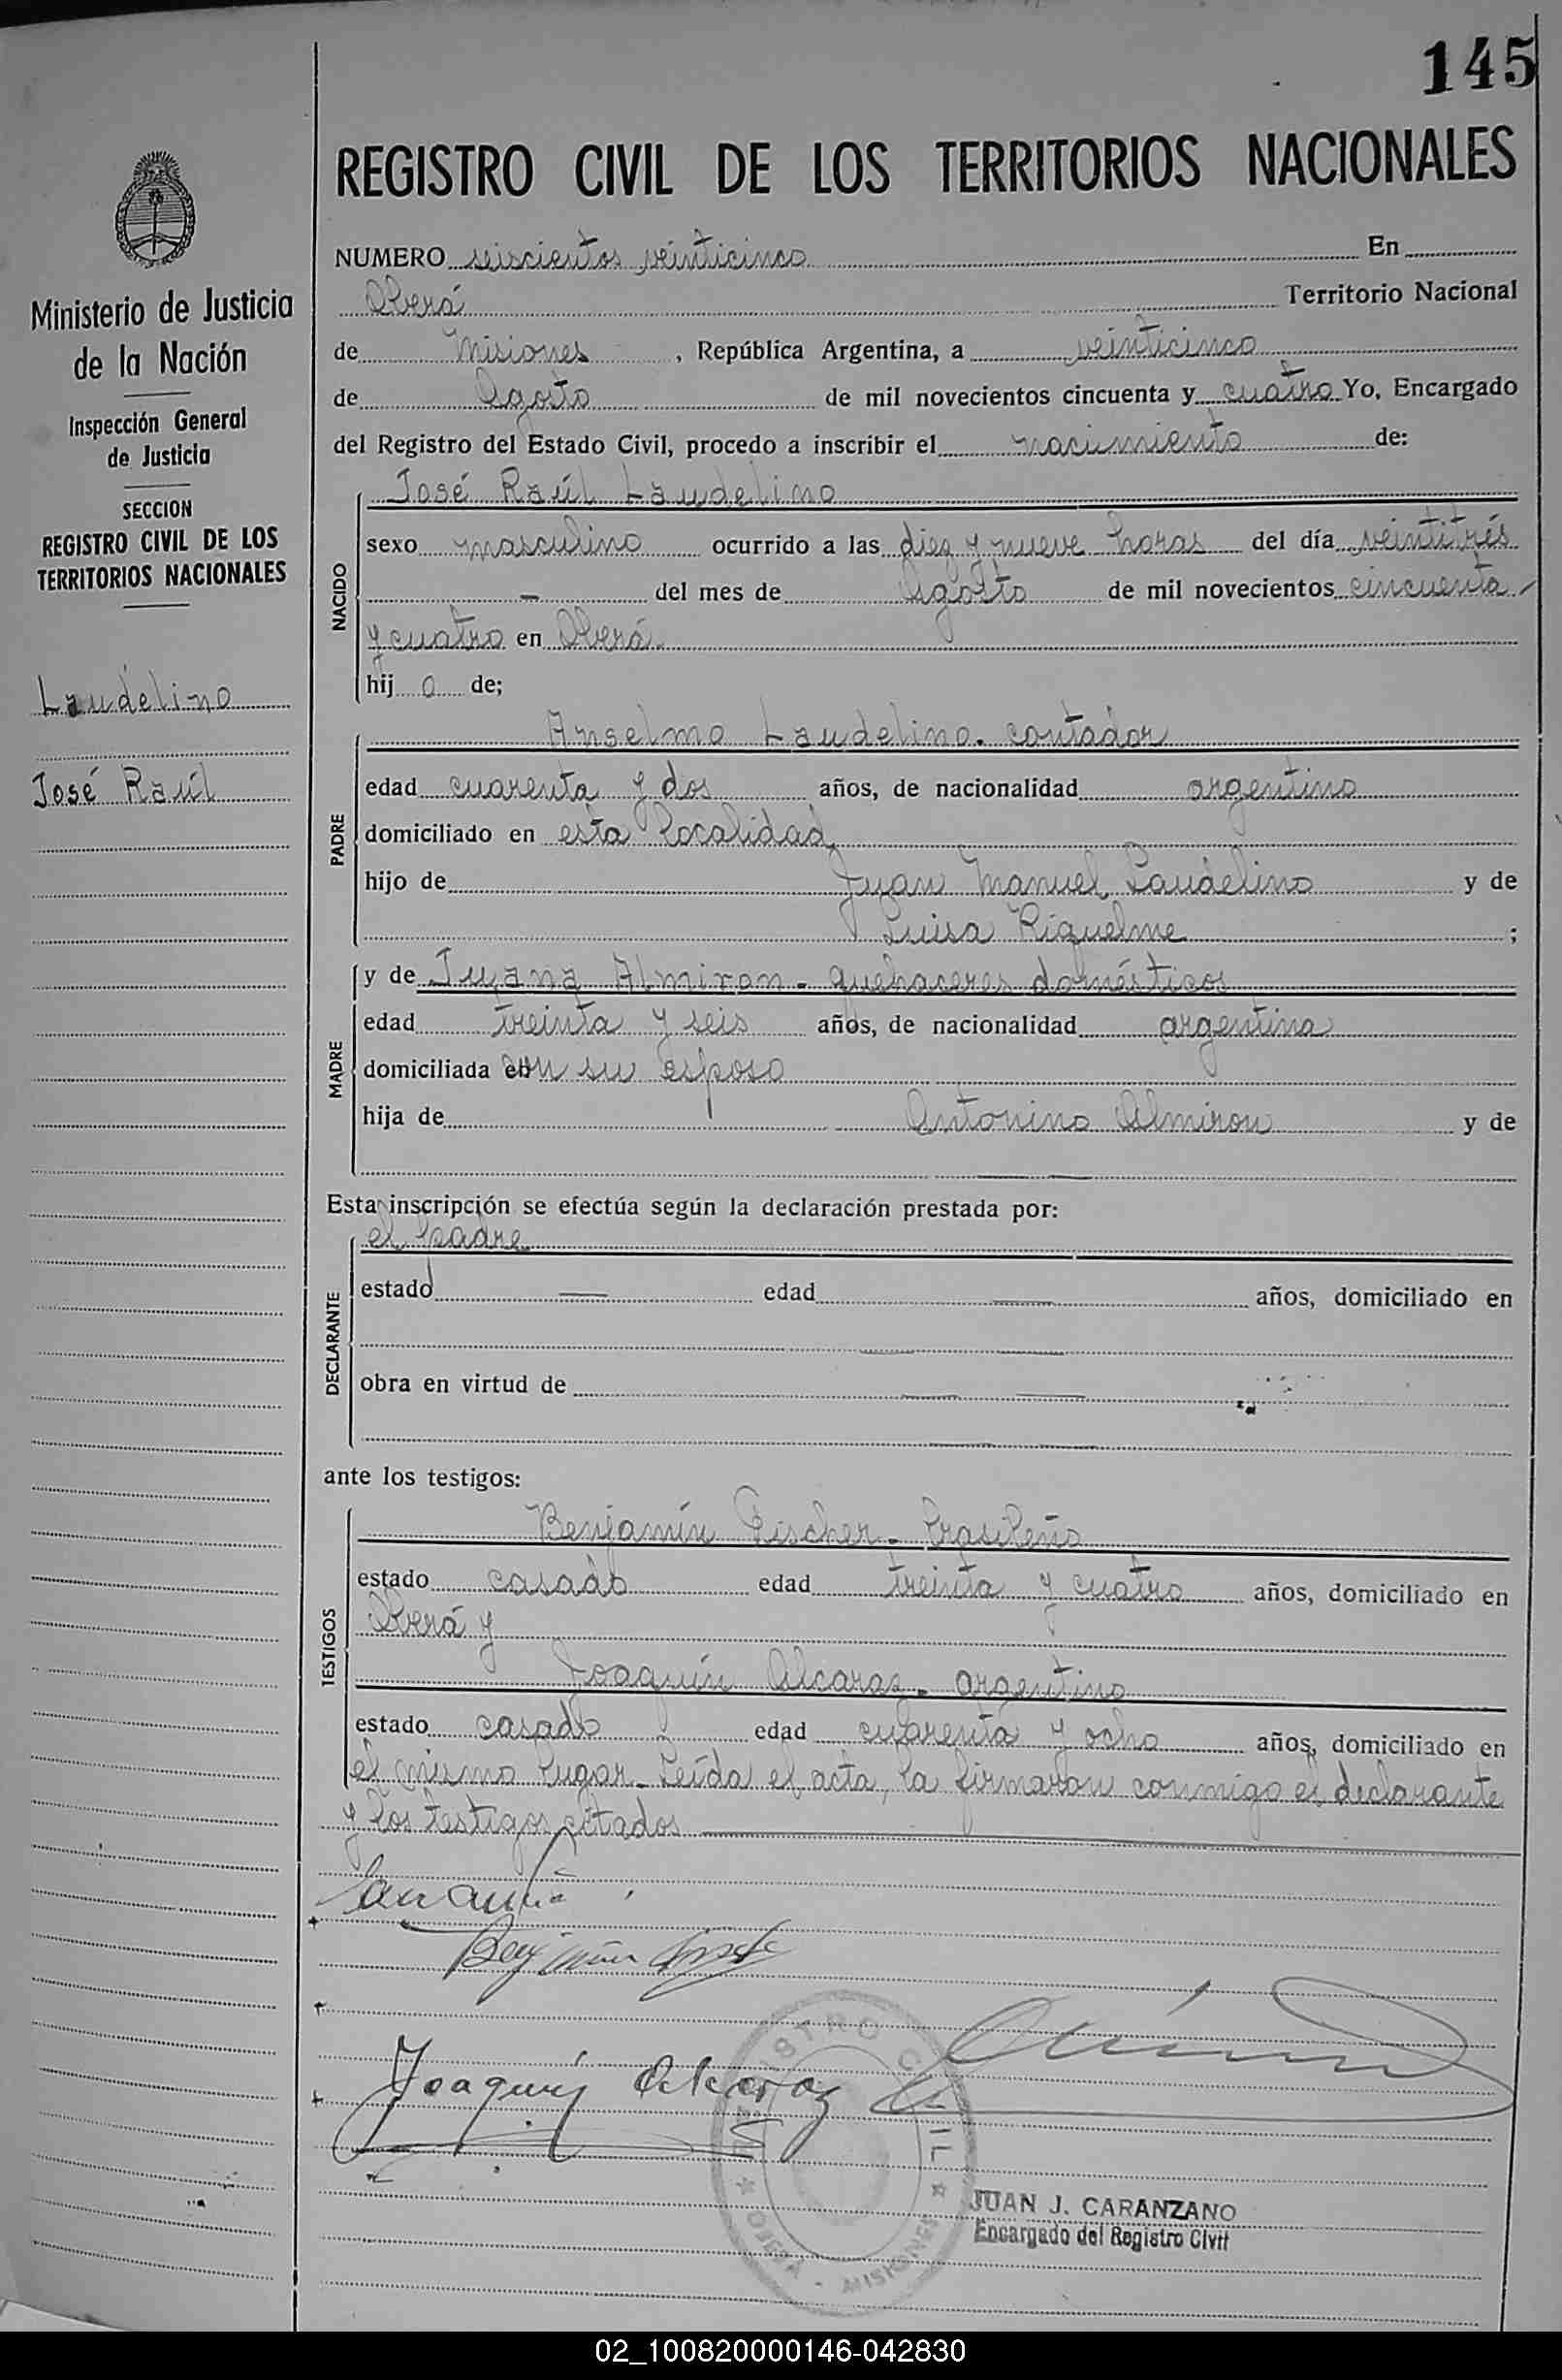 145
Ministerio de Justicia
de la Nación
Inspección General
de Justicia
SECCION
REGISTRO CIVIL DE LOS
TERRITORIOS NACIONALES
Laudelino
José Raúl
REGISTRO CIVIL DE LOS TERRITORIOS NACIONALES
NUMERO seiscientos veinticinco En
Oberá Territorio Nacional
de Misiones, República Argentina, a veinticinco
de Agosto de mil novecientos cincuenta y cuatro Yo, Encargado
del Registro del Estado Civil, procedo a inscribir el nacimiento de:
NACIDO
José Raúl Laudelino
sexo masculino ocurrido a las diez y nueve horas del día veintitrés
- del mes de Agosto de mil novecientos cincuenta
y cuatro en Oberá.
hij o de;
PADRE
Anselmo Laudelino. contador
edad cuarenta y dos años, de nacionalidad argentino
domiciliado en esta localidad
hijo de Juan Manuel Laudelino y de
Luisa Riquelme ;
MADRE
y de Juana Almiron - quehaceres domésticos
edad treinta y seis años, de nacionalidad argentina
domiciliada con su esposo
hija de Antonino Almiron y de
Esta inscripción se efectúa según la declaración prestada por:
DECLARANTE
el padre
estado — edad — años, domiciliado en
obra en virtud de
ante los testigos:
TESTIGOS
Benjamín Fischer - brasileño
estado casado edad treinta y cuatro años, domiciliado en
Oberá y
Joaquín Alcaraz - argentino
estado casado edad cuarenta y ocho años, domiciliado en
el mismo lugar. Leída el acta, la firmaron conmigo el declarante
y los testigos citados
Benjamín
Joaquín Alcaraz
REGISTRO CIVIL
OBERA - MISIONES
JUAN J. CARANZANO
Encargado del Registro Civil
02_100820000146-042830